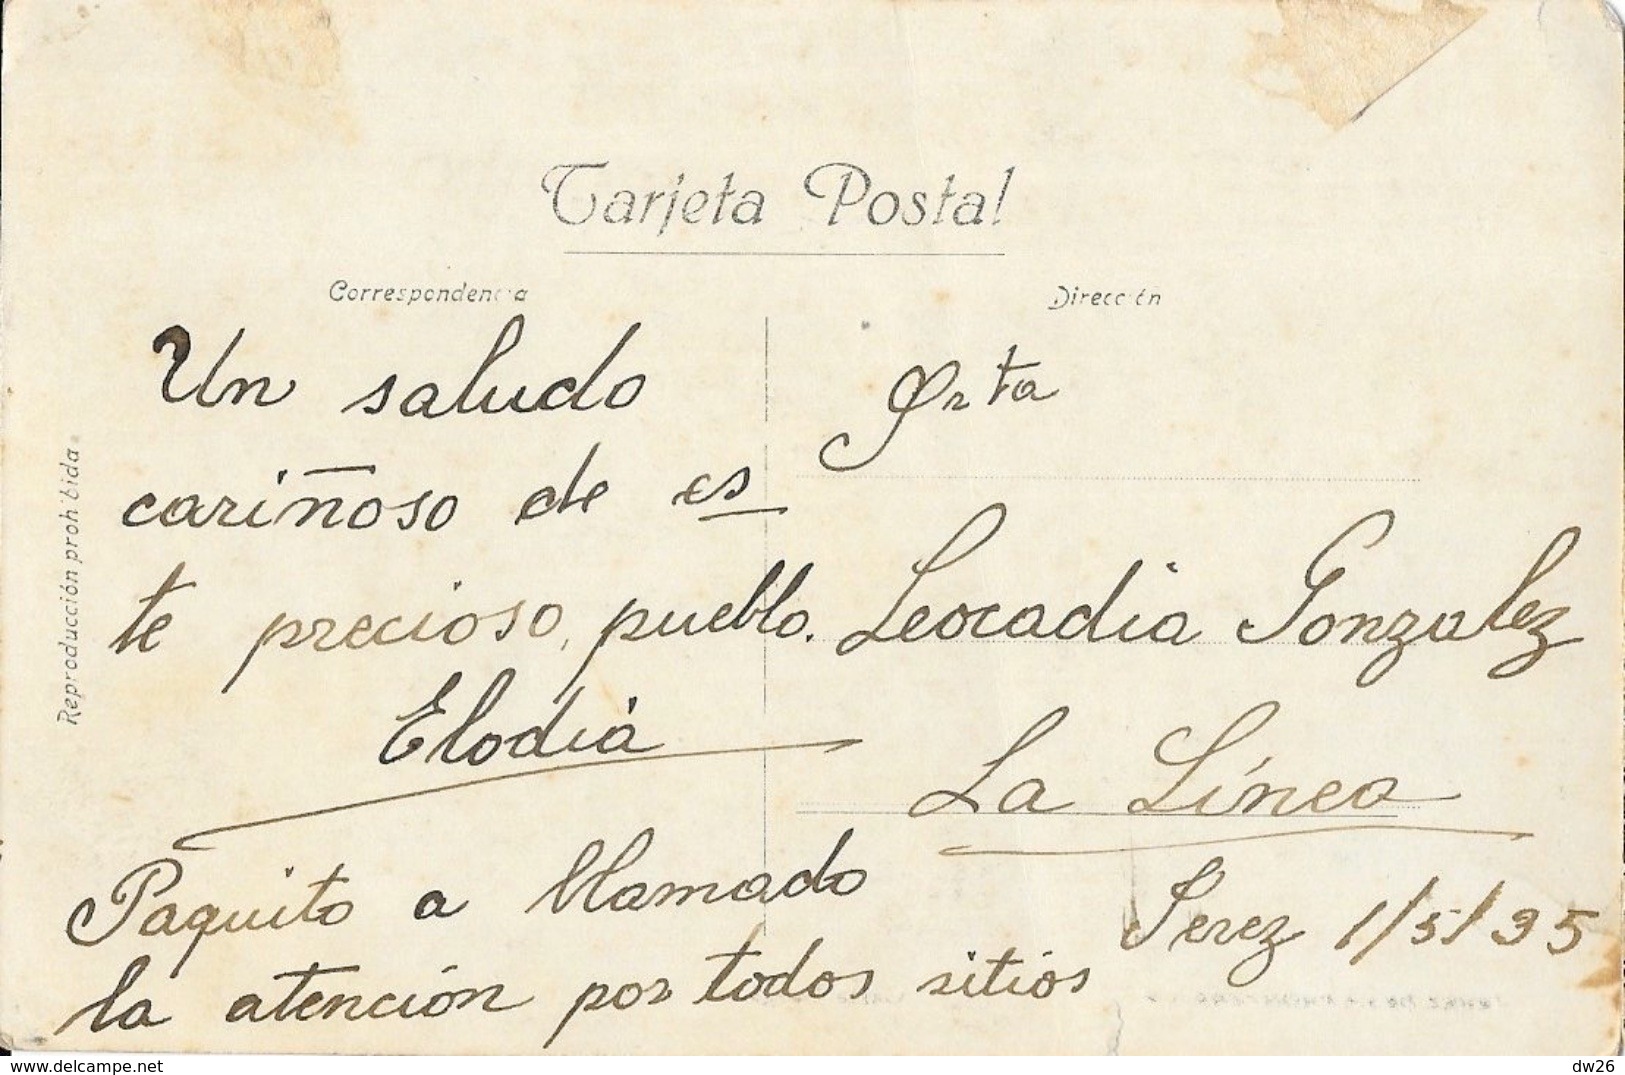 Tarjeta Postal
Correspondencia
Dirección
Reproducción prohibida.
Un saludo
cariñoso de es
te precioso, pueblo.
Elodia
Paquito a llamado
la atención por todos sitios
Srta
Leocadia Gonzalez
La Línea
Jerez 1/5/35
www.delcampe.net
dw26